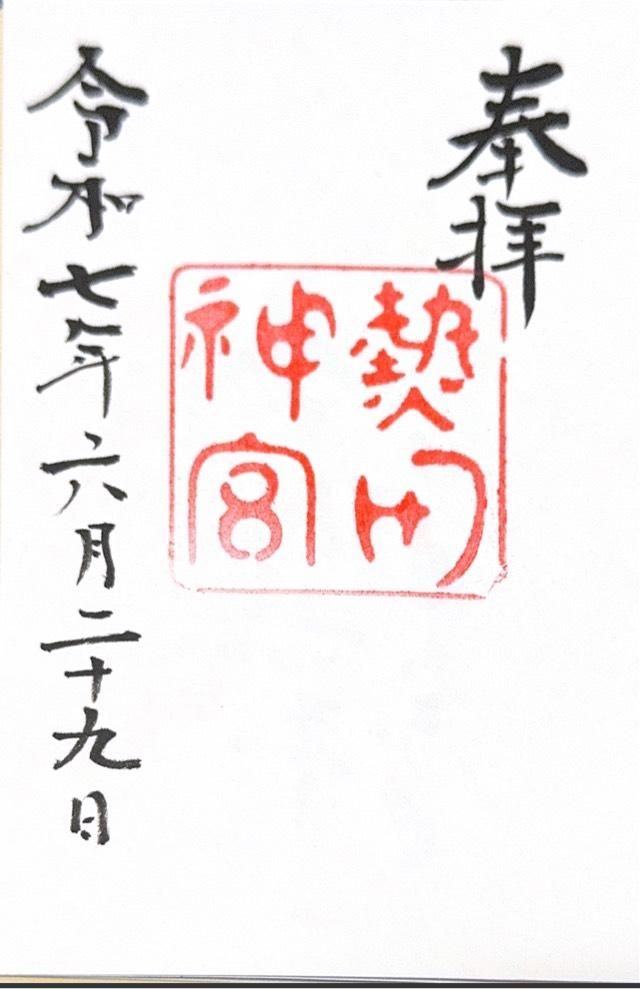 奉拝
熱田
神宮
令和七年六月二十九日